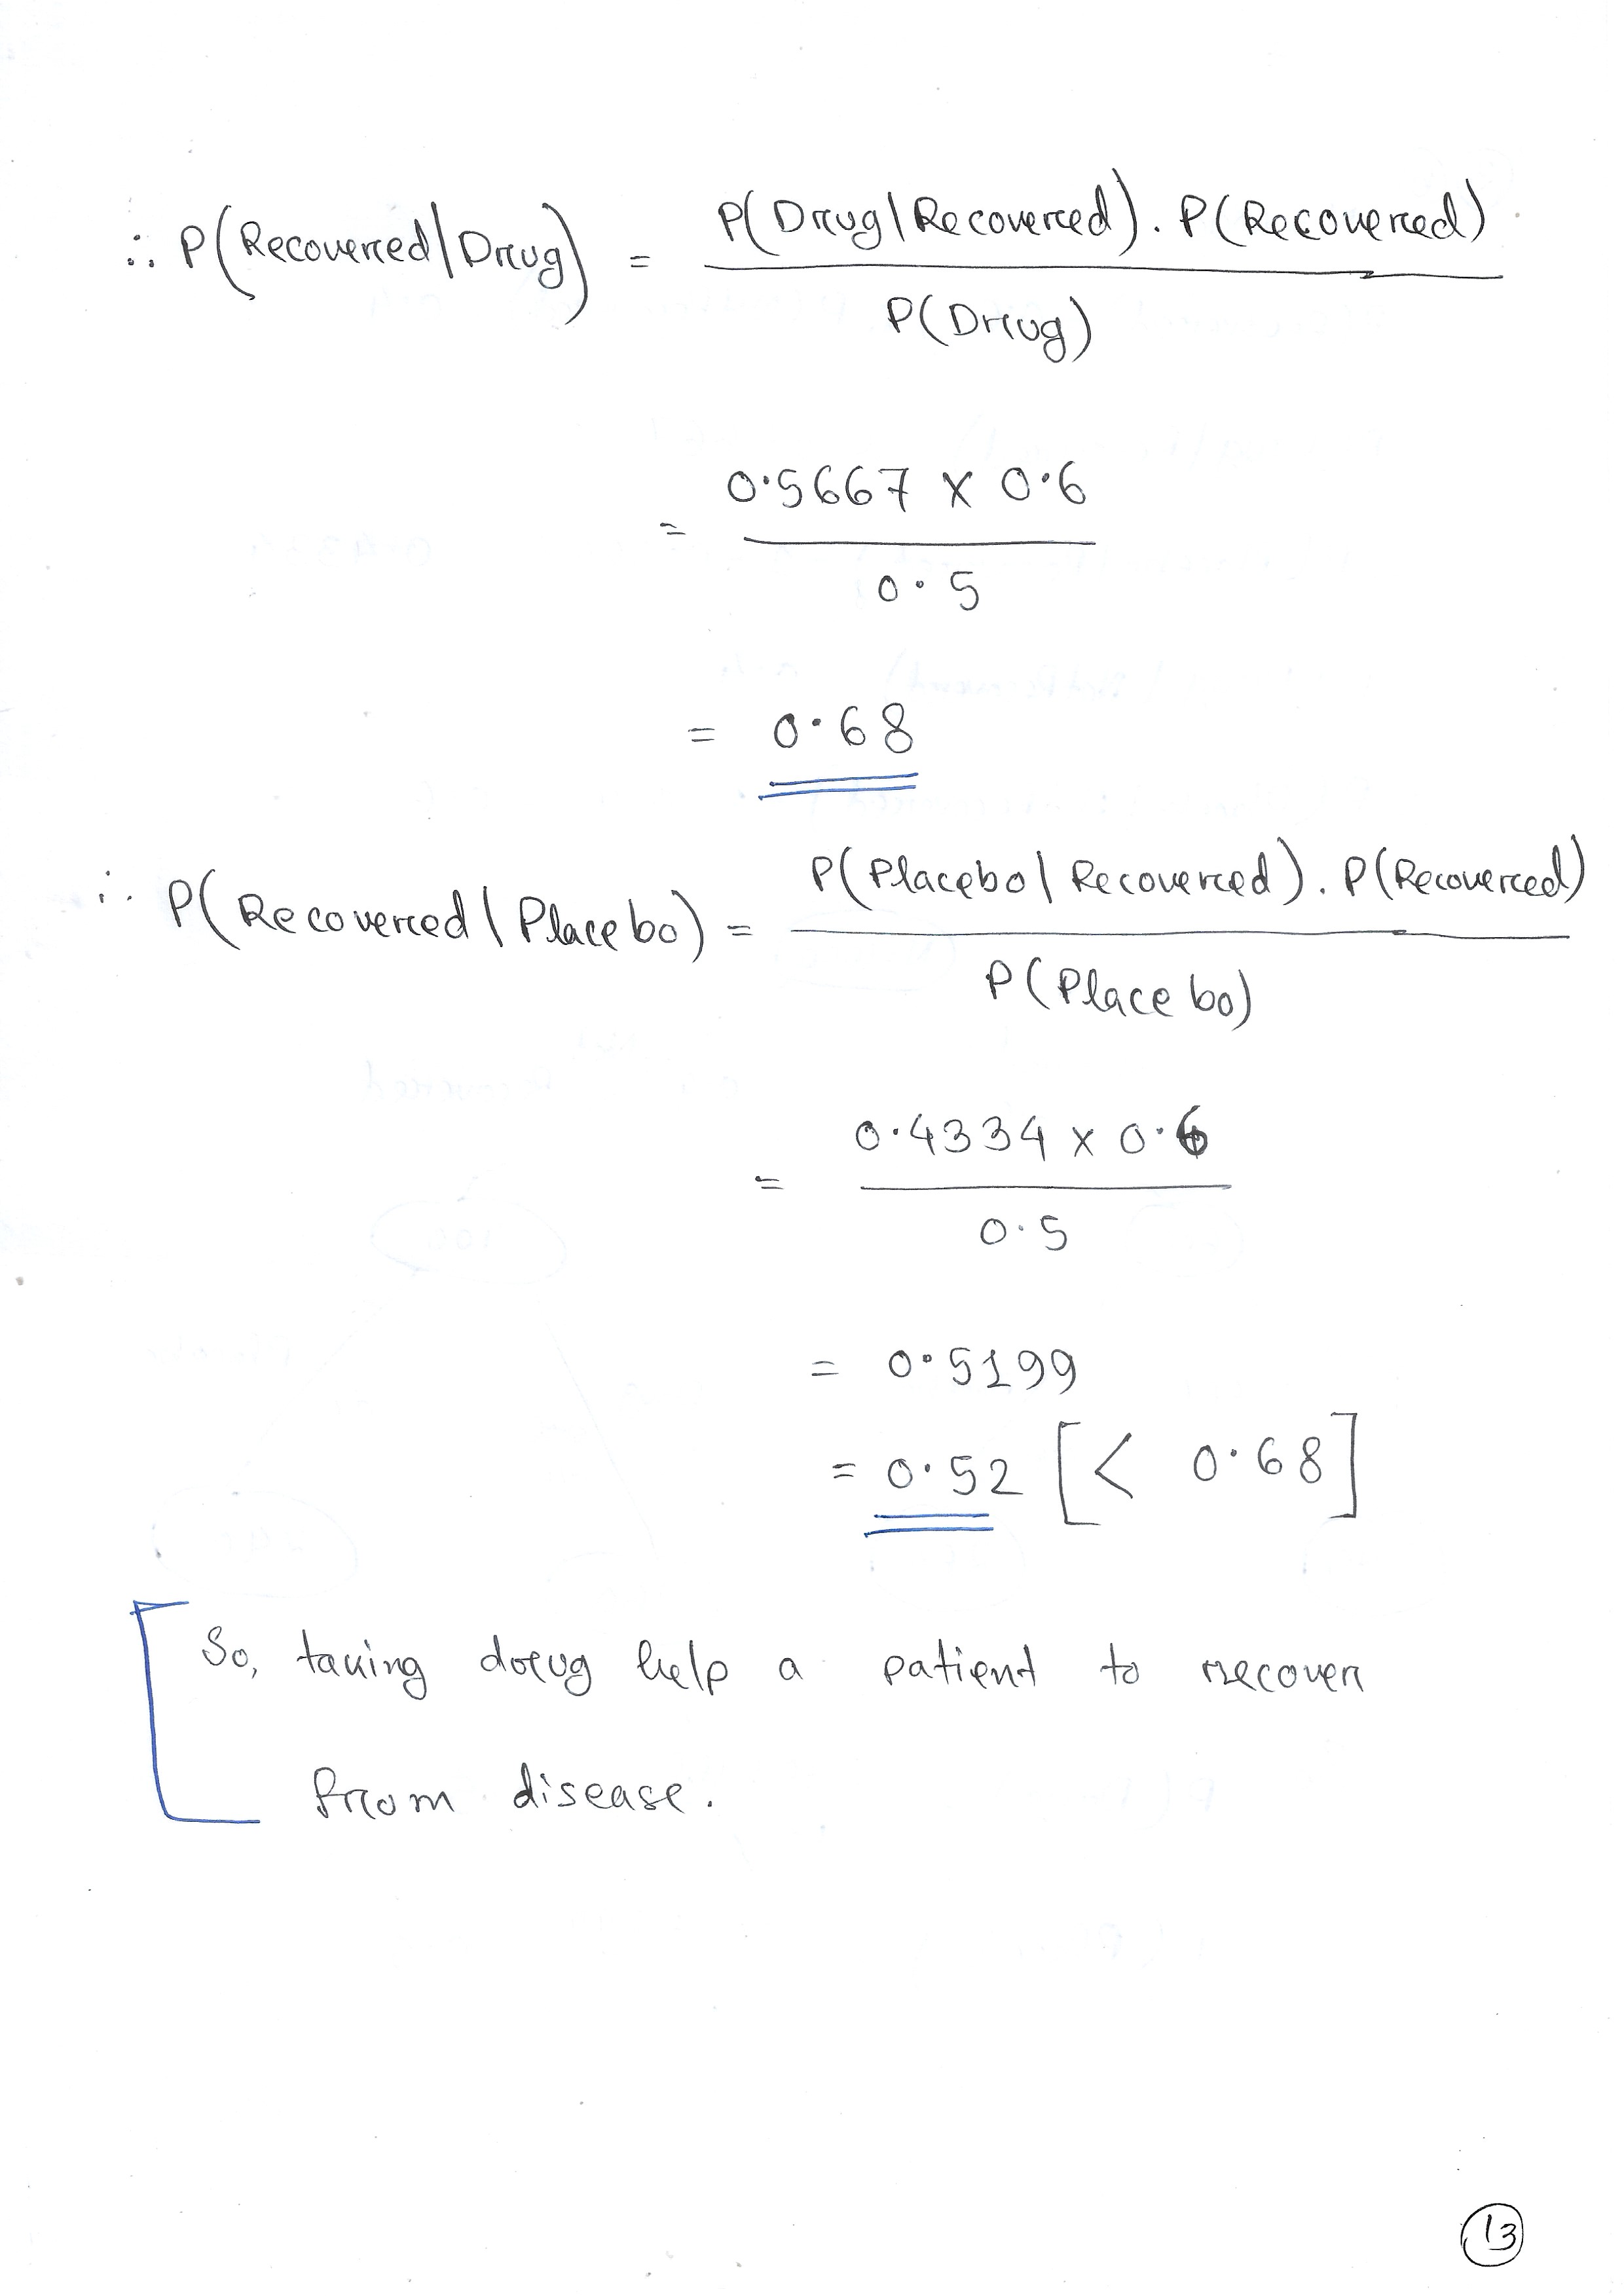 ∴ P(Recovered|Drug) = P(Drug|Recovered). P(Recovered)
P(Drug)
= 0.5667 x 0.6
0.5
= 0.68
∴ P(Recovered|Placebo) = P(Placebo|Recovered). P(Recovered)
P(Placebo)
= 0.4334 x 0.6
0.5
= 0.5199
= 0.52 [< 0.68]
So, taking drug help a patient to recover
from disease.
13